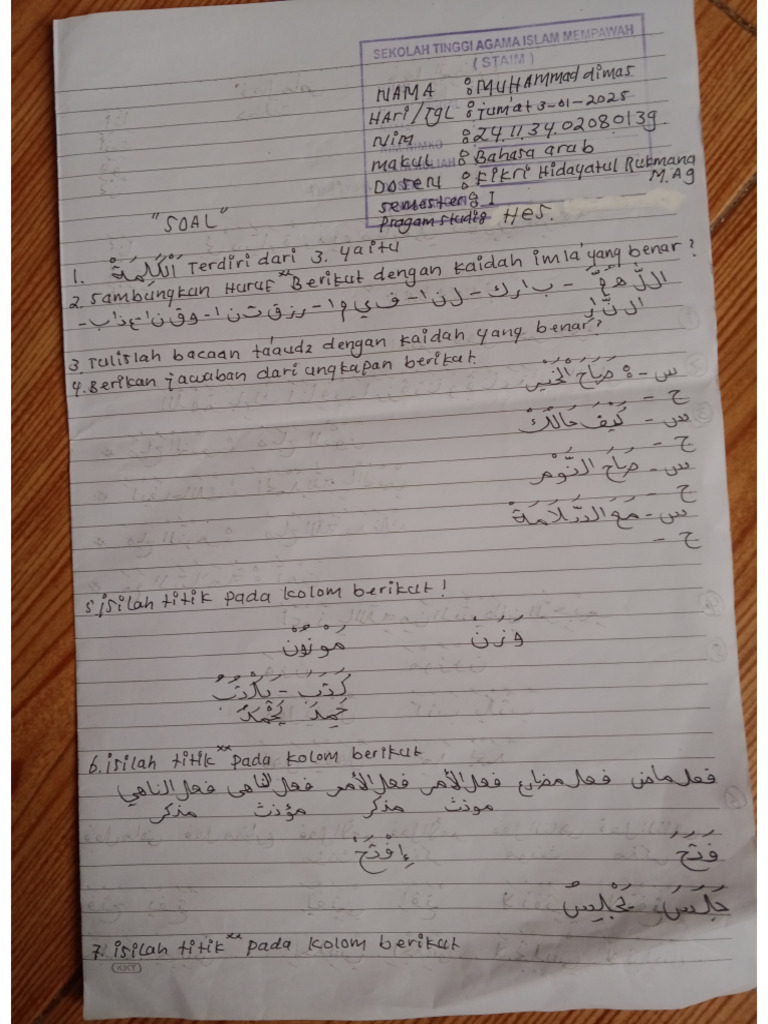 SEKOLAH TINGGI AGAMA ISLAM MEMPAWAH
( STAIM )
NAMA : MUHAmmad dimas
HAri/TGL : Jum'at 3-01-2025
Nim : 24.11.34.0208013g
makul : Bahasa arab
Dosen : Fikri Hidayatul Rukmana M.Ag
semesteng I
Pragam studig Hes.
"SOAL"
1. اَلْكَلِمَةُ Terdiri dari 3. yaitu
2. Sambungkan Huruf" Berikut dengan kaidah imla' yang benar?
اللّٰهُمَّ - ب ا ر ك - ل ن ا - ف ي م ا - ر ز ق ت ن ا - و ق ن ا ع ذ ا ب -
ال نَّار
3. Tulislah bacaan ta'audz dengan kaidah yang benar?
4. Berikan jawaban dari ungkapan berikut.
س - : صَبَاحُ الْخَيْر
ج -
س - كَيْفَ حَالُكَ
ج -
س - صَبَاحَ النَّوْم
ج -
س - مَعَ السَّلَامَة
ج -
5. isilah titik pada kolom berikut!
وَزَنَ مَوْزُوْن
كَتَبَ - يَكْتُبُ
حَمِدَ يَحْمَدُ
6. isilah titik" pada kolom berikut
فعل ماض فعل مضارع فعل الأمر فعل الأمر فعل الناهى فعل الناهي
مونث مذكر مؤنث مذكر
فَتَحَ إِفْتَحْ
جَلَسَ يَجْلِيسُ
7. isilah titik" pada kolom berikut
KKY